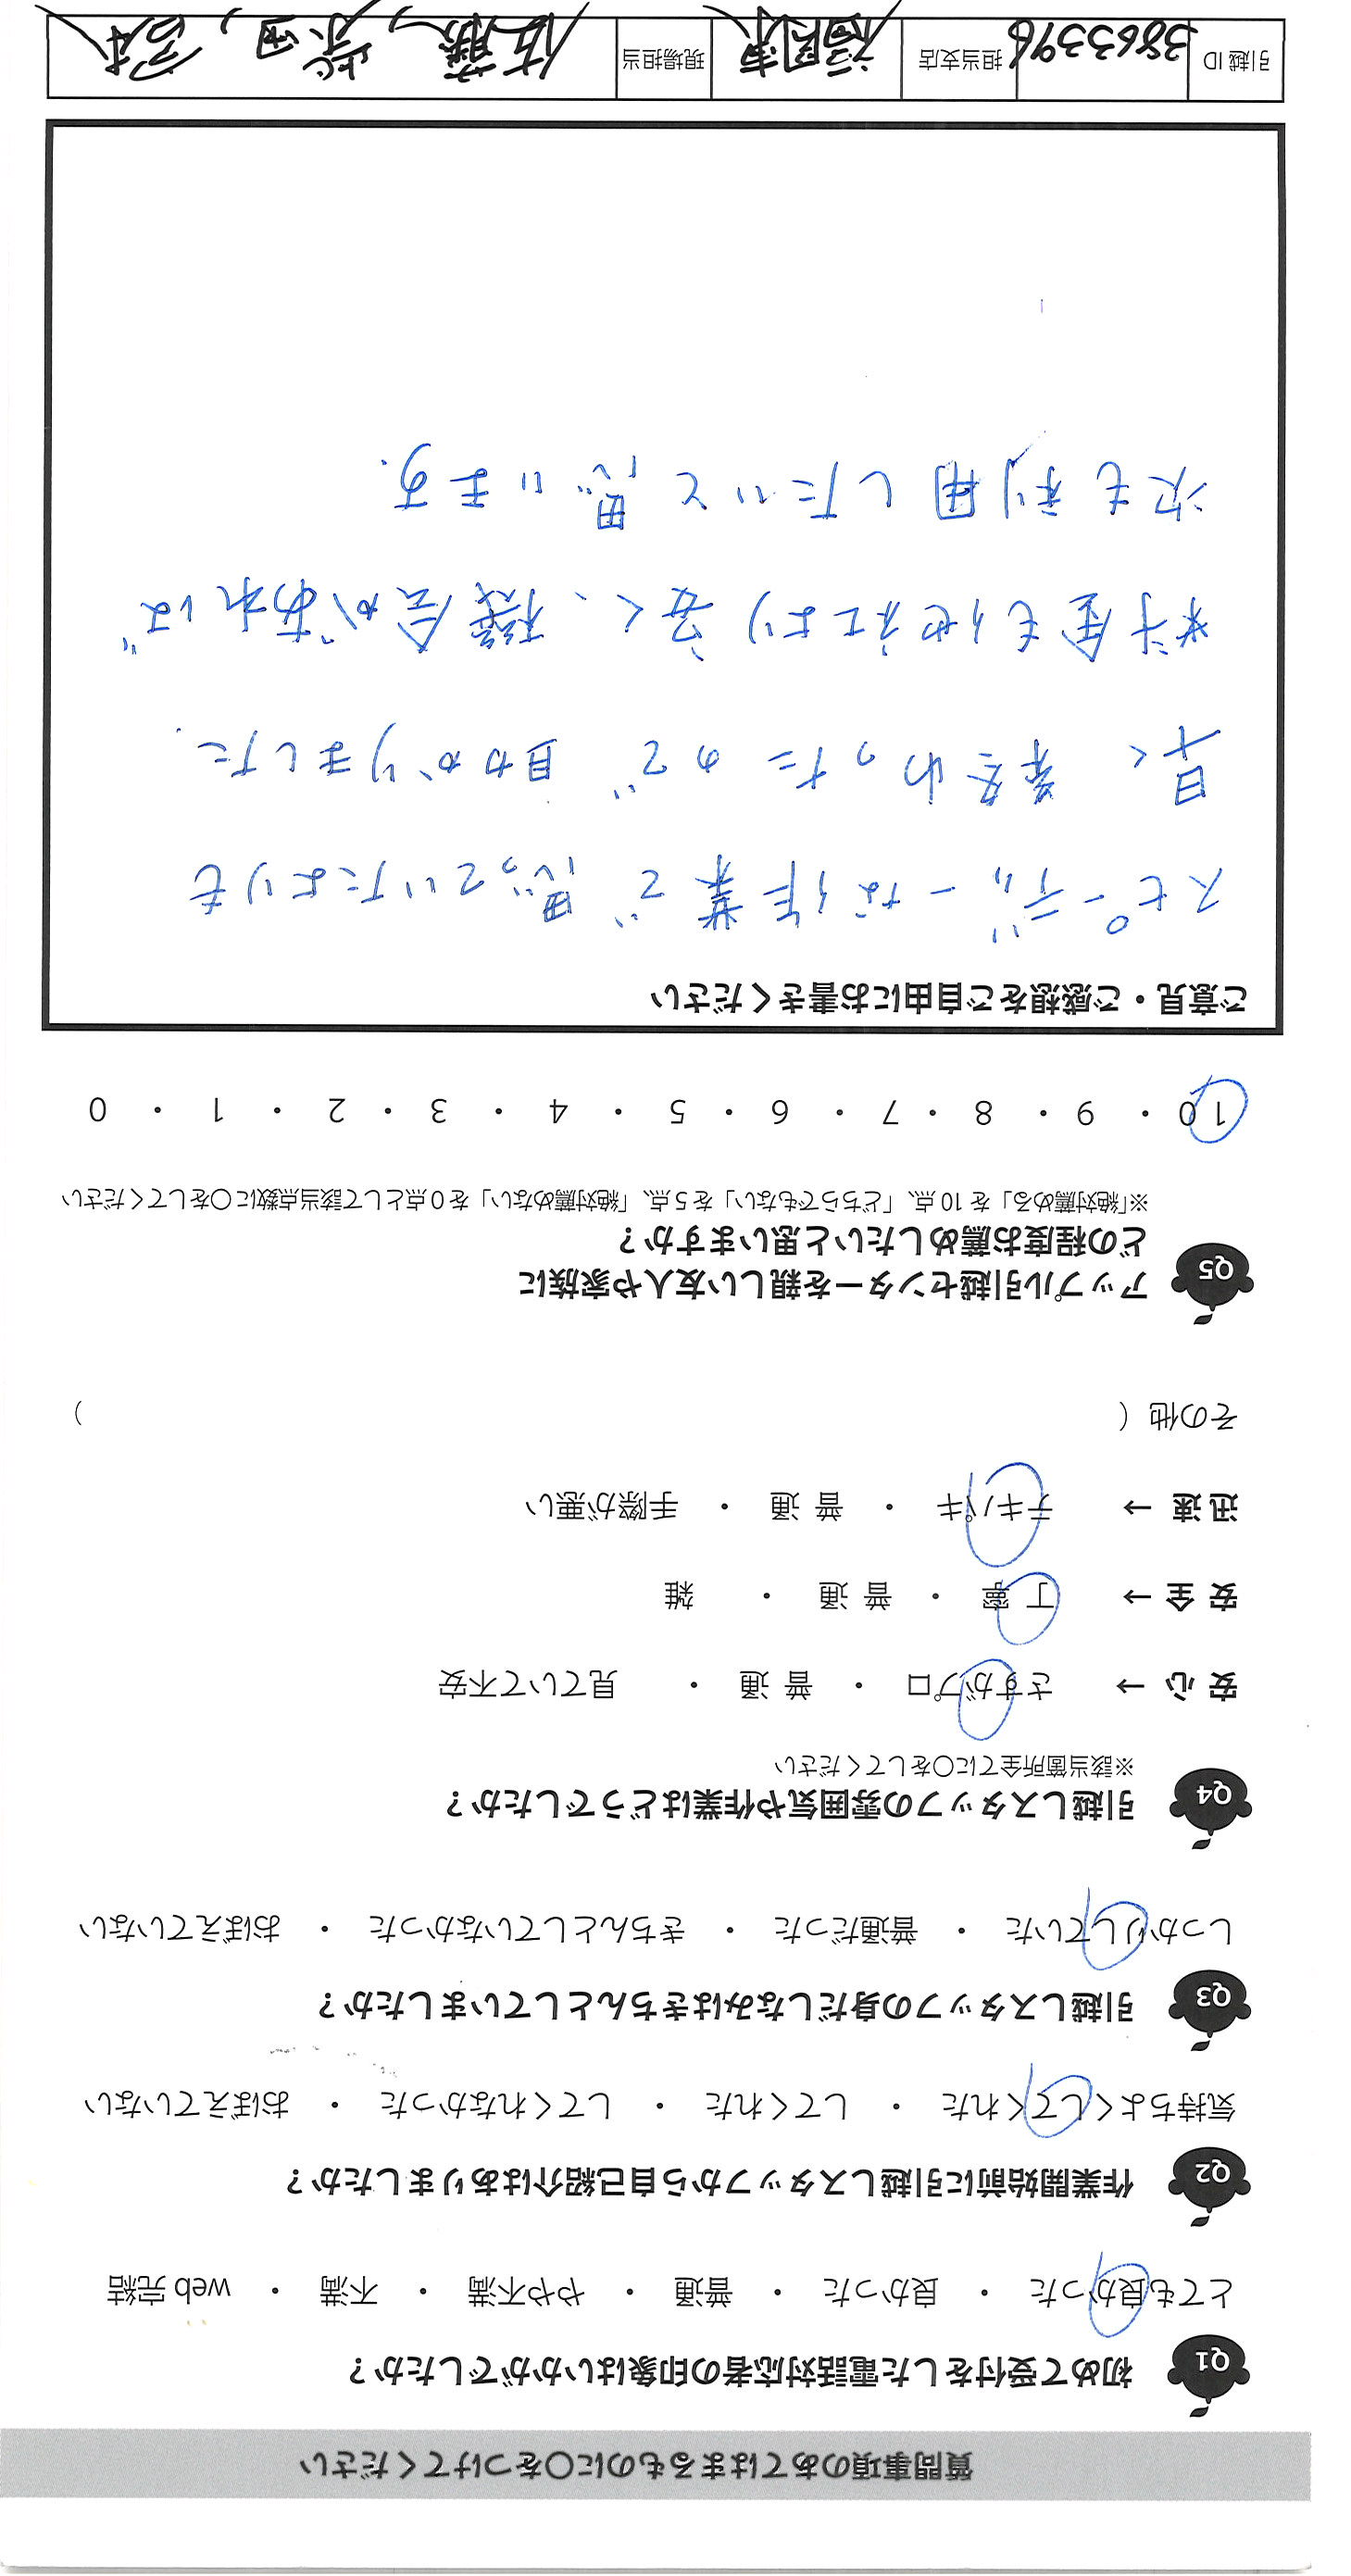 質問事項のあてはまるものに○をつけてください
Q1 初めて受付をした電話対応者の印象はいかがでしたか？
とても良かった ・ 良かった ・ 普通 ・ やや不満 ・ 不満 ・ web 完結
Q2 作業開始前に引越しスタッフから自己紹介はありましたか？
気持ちよくしてくれた ・ してくれた ・ してくれなかった ・ おぼえていない
Q3 引越しスタッフの身だしなみはきちんとしていましたか？
しっかりしていた ・ 普通だった ・ きちんとしていなかった ・ おぼえていない
Q4 引越しスタッフの雰囲気や作業はどうでしたか？
※該当箇所全てに○をしてください
安 心 → さすがプロ ・ 普 通 ・ 見ていて不安
安 全 → 丁 寧 ・ 普 通 ・ 雑
迅 速 → テキパキ ・ 普 通 ・ 手際が悪い
その他（ ）
Q5 アップル引越センターを親しい友人や家族に
どの程度お薦めしたいと思いますか？
※「絶対薦める」を 10 点、「どちらでもない」を 5 点、「絶対薦めない」を 0 点として該当点数に○をしてください
10 ・ 9 ・ 8 ・ 7 ・ 6 ・ 5 ・ 4 ・ 3 ・ 2 ・ 1 ・ 0
ご意見・ご感想をご自由にお書きください
スピーディーな作業で思っていたよりも
早く終わったので助かりました．
料金も他社より安く、機会があれば
次も利用したいと思います．
引越 ID 38633396 担当支店 福岡東 現場担当 佐藤，柴田，宮本